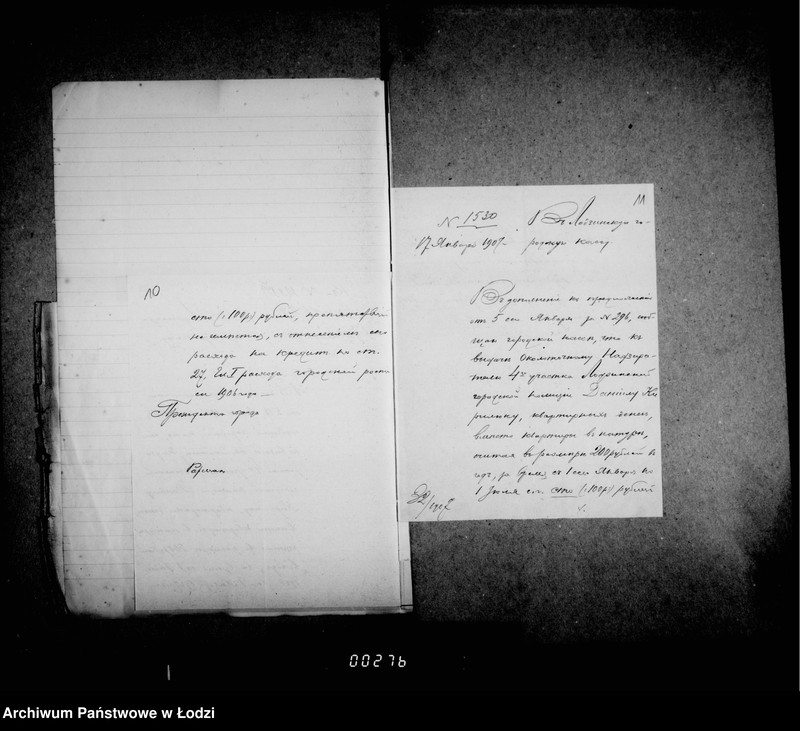 10
сто (100р) рублей, препятствiй
не имеется, с отнесенiем сего
расхода на кредит по ст.
расхода городской роспи
си 1906 года
Президент города
11
N 1530
17 Января 1907 г.
В Лодзинскую го-
родскую кассу
В дополнение к предписанiю
от 5 сего Января за N 296,
городской кассе, что к
выдаче Околоточному Надзира-
телю 4го участка Лодзинской
городской полицiи Данiилу Ки
рилюку, квартирных денег,
вместо квартиры в натуре,
считая в размере 200 рублей в
год, за время с 1 сего Января по
1 Iюля с.г. сто (100р) рублей
00276
Archiwum Państwowe w Łodzi